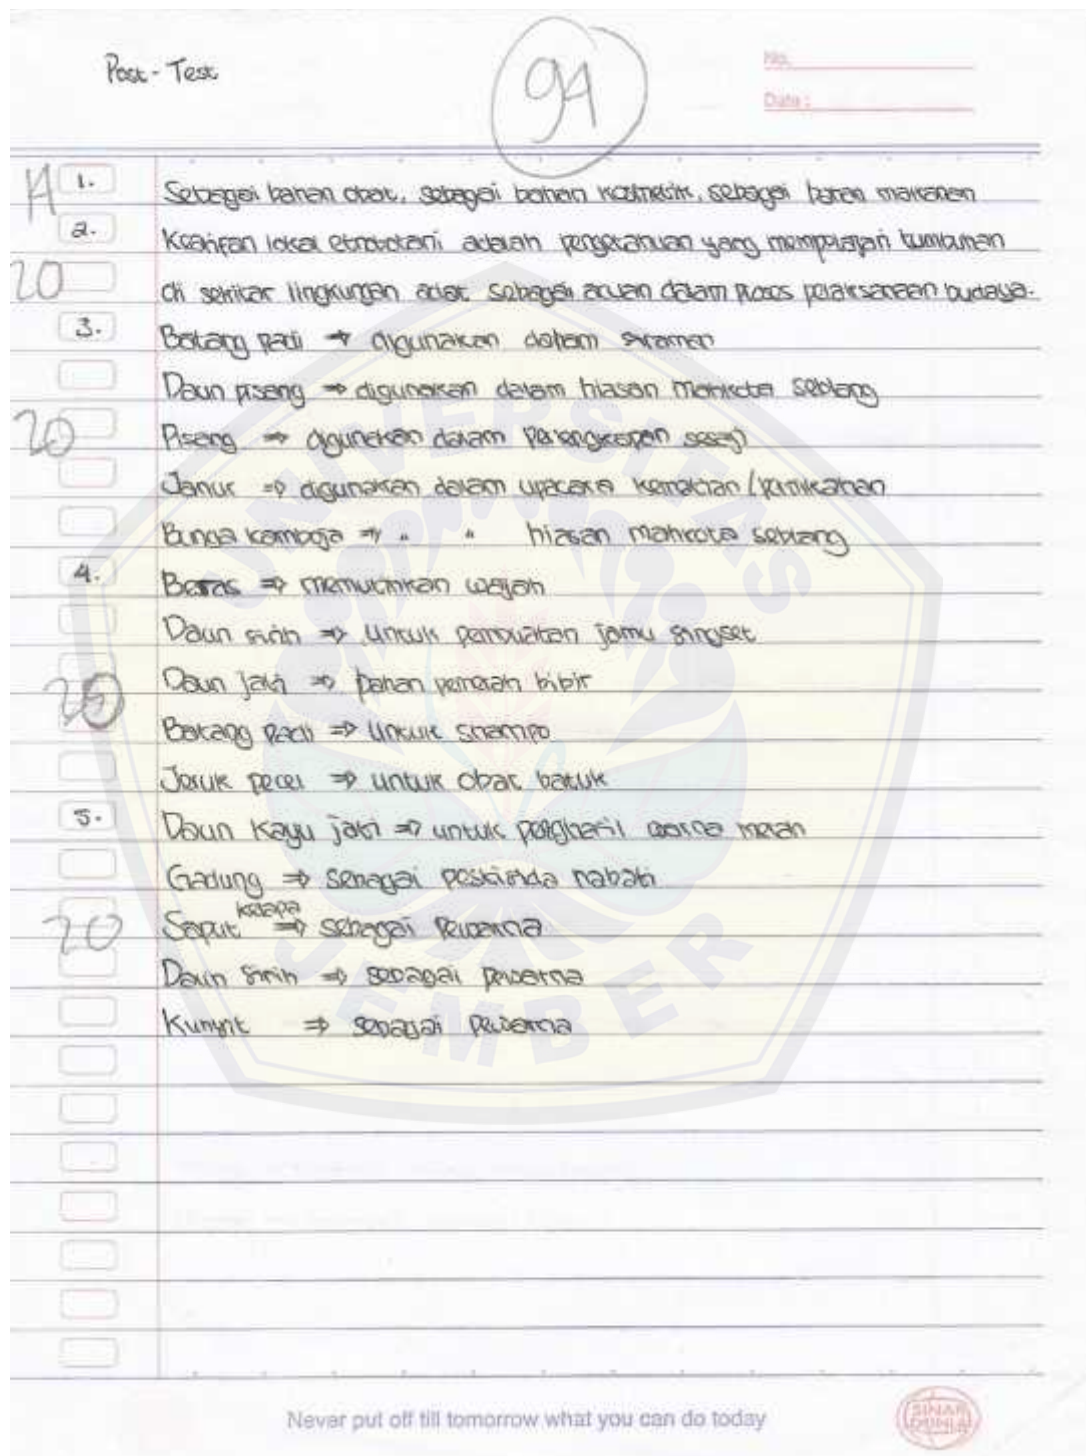 Post-Test
94
No.
Date:
14 1. Sebagai bahan obat, sebagai bahan kosmetik, sebagai bahan makanan
2. Kearifan lokal etnobotani adalah pengetahuan yang mempelajari tumbuhan
20 di sekitar lingkungan adat sebagai acuan dalam proses pelaksanaan budaya.
3. Batang padi ⇒ digunakan dalam siraman
Daun pisang ⇒ digunakan dalam hiasan mahkota seblang
20 Pisang ⇒ digunakan dalam perlengkapan sesaji
Janur ⇒ digunakan dalam upacara kematian / pernikahan
Bunga kamboja ⇒ " " hiasan mahkota seblang
4. Beras ⇒ memutihkan wajah
Daun sirih ⇒ untuk pembuatan jamu singset
20 Daun jati ⇒ bahan pemerah bibir
Batang padi ⇒ untuk shampo
Jeruk pecel ⇒ untuk obat batuk
5. Daun kayu jati ⇒ untuk penghasil warna merah
Gadung ⇒ sebagai pestisida nabati
20 Saput kelapa ⇒ sebagai pewarna
Daun sirih ⇒ sebagai pewarna
Kunyit ⇒ sebagai pewarna
UNIVERSITAS
JEMBER
Never put off till tomorrow what you can do today
SINAR DUNIA